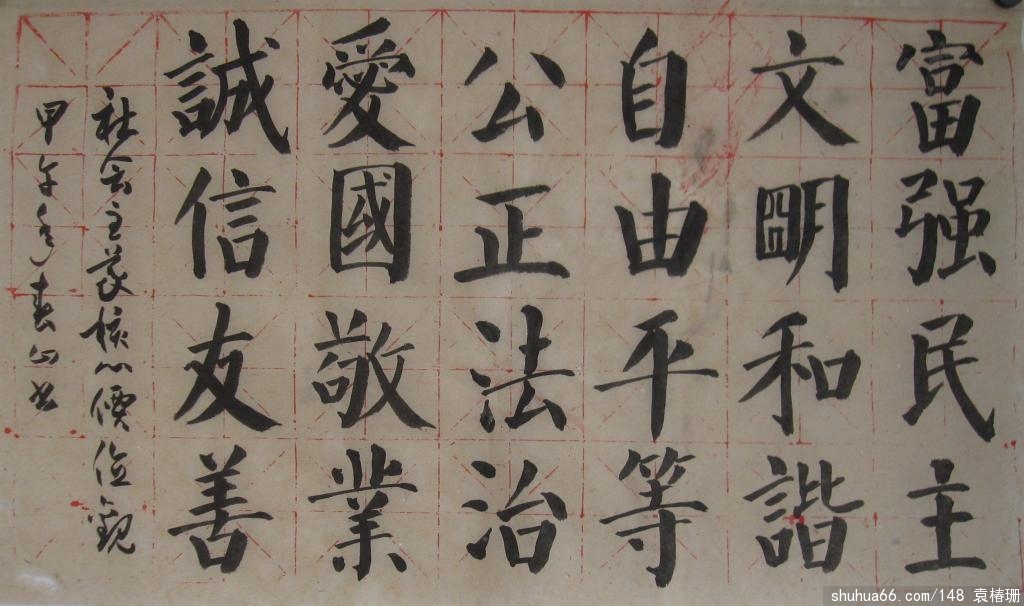 富强民主
文明和諧
自由平等
公正法治
愛國敬業
誠信友善
社会主义核心價值觀
甲午年春山书
shuhua66.com/148 袁椿珊